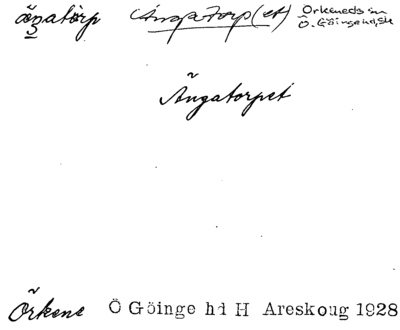 Ängatorp(et) Örkeneds sn
Ö. Göinge hd, Sk
Ängatorpet
Örkene Ö Göinge hd H Areskoug 1928